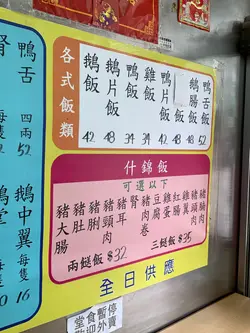 鴨舌
四兩
52
鵝中翼
每隻
16
各式飯類
鵝飯 42
鵝片飯 48
鴨飯 34
雞飯 34
鴨片飯 42
鵝腸飯 48
鴨舌飯 52
什錦飯
可選以下
豬大腸
豬肚
豬脷
豬頭肉
豬耳
腎
豬肉卷
豆腐
雞蛋
紅腸
雞翼
兩餸飯 $32
三餸飯 $35
全日供應
堂食暫停
歡迎外賣